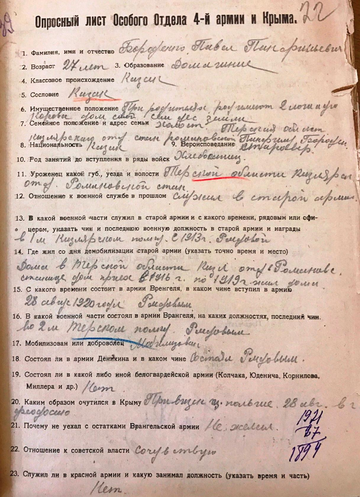 22
Опросный лист Особого Отдела 4-й армии и Крыма.
1. Фамилия, имя и отчество Бороденко Павел
2. Возраст 27 лет 3. Образование Домашнее
4. Классовое происхождение Казак
5. Сословие Казак
6. Имущественное положение При родителях
7. Семейное положение и адрес семьи холост Терской област
8. Национальность Казак 9. Вероисповедание старовер
10. Род занятий до вступления в ряды войск
11. Уроженец какой губ., уезда и волости Терской области Кизлярск
отд.
12. Отношение к военной службе в прошлом служил в старой армии
13. В какой военной части служил в старой армии и с какого времени, рядовым или офи-
цером, указать чин и последнюю военную должность в старой армии и награды
в 1м Кизлярском полку. С 1913 г. Рядовой
14. Где жил со дня демобилизации старой армии (указать точно время и место)
Дома в Терской области Кизл отд
по 1919 г жил дома
15. С какого времени состоит в армии Врангеля, в каком чине вступил в армию
28 авг 1920 года Рядовым
16. В какой военной части состоял в армии Врангеля, на каких должностях, последний чин.
во 2м Терском полку. Рядовым
17. Мобилизован или доброволец Мобилизован
18. Состоял ли в армии Деникина и в каком чине Состоял Рядовым.
19. Состоял ли в какой либо иной белогвардейской армии (Колчака, Юденича, Корнилова,
Миллера и др.) Нет.
20. Каким образом очутился в Крыму 28 авг. в г
Феодосию
21. Почему не уехал с остатками Врангельской армии Не желал.
22. Отношение к советской власти Сочувствую
23. Служил ли в красной армии и какую занимал должность (указать время и часть)
Нет.
1921
27
1894